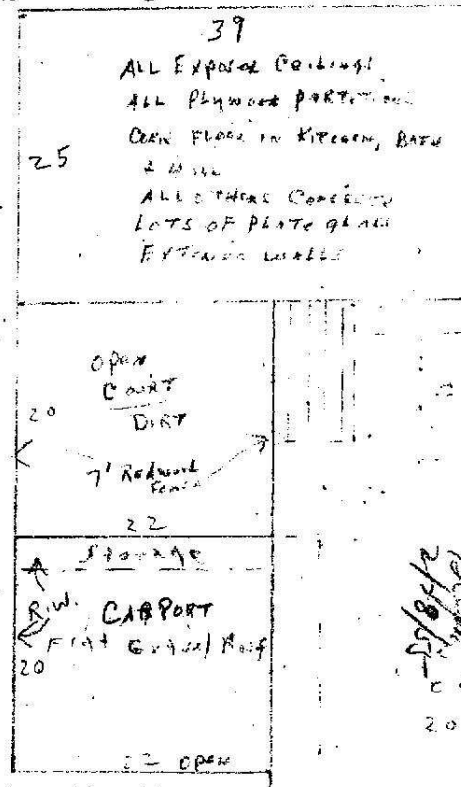 39
ALL EXPOSED CEILINGS
ALL PLYWOOD PARTITIONS
25
CORK FLOOR IN KITCHEN, BATH
& HALL
ALL OTHERS CONCRETE
LOTS OF PLATE GLASS
EXTERIOR WALLS
OPEN
COURT
20
DIRT
7' Redwood
Fence
22
Storage
R.W.
CARPORT
Flat Gravel Roof
20
20
22 OPEN